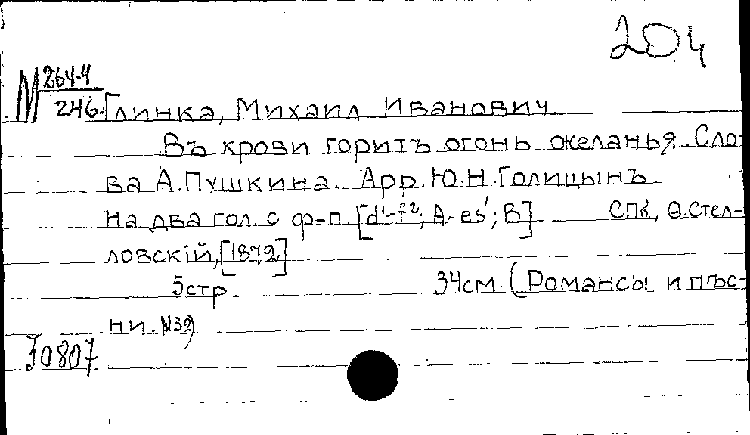 204
М 264-4
246. Глинка, Михаил Иванович
Въ крови горитъ огонь желанья. Сло-
ва А. Пушкина. Арр. Ю.Н. Голицынъ
на два гол. с ф-п. [d'-f²; A-es'; B] СПб, Ѳ. Стел-
ловскій, [1872]
5 стр. 34 см. (Романсы и пѣс-
ни. №39)
30807